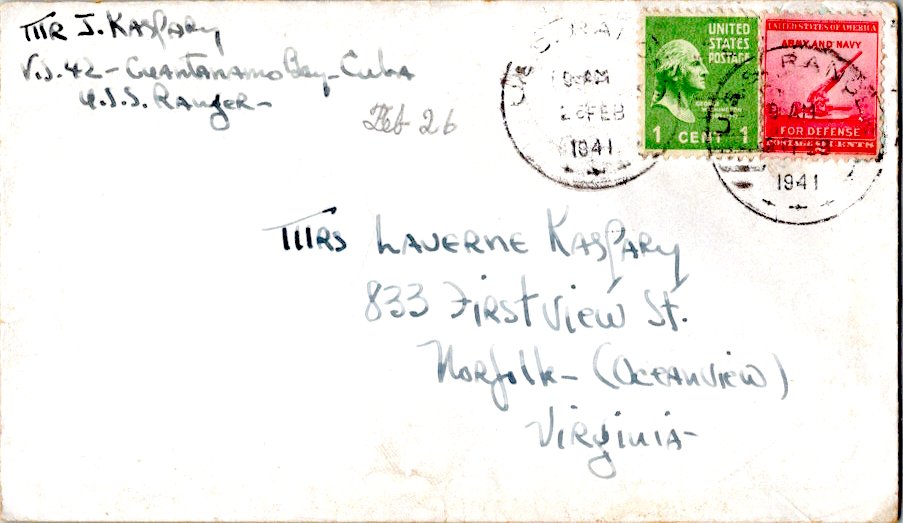 Mr J. Kaspary
V.S. 42 - Guantanamo Bay - Cuba
U.S.S. Ranger -
Feb 26
AM
FEB
1941
UNITED
STATES
POSTAGE
GEORGE WASHINGTON
1 CENT 1
UNITED STATES OF AMERICA
ARMY AND NAVY
FOR DEFENSE
POSTAGE 2 CENTS
U.S.S. RANGER
9 AM
1941
Mrs Laverne Kaspary
833 First View St.
Norfolk - (Oceanview)
Virginia -